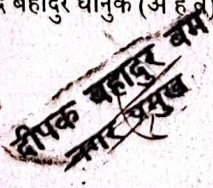 बहादुर धानुक (अ ह ब)
दीपक बहादुर बम
नगर प्रमुख